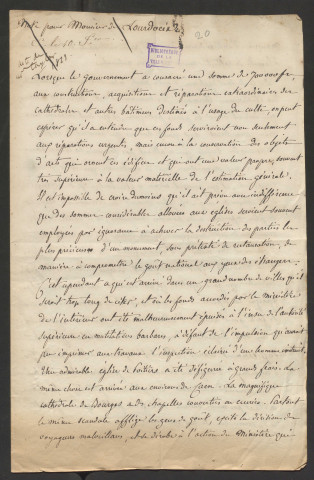 pour Monsieur de Lourdoueix
20
BIBLIOTHEQUE
DE LA
Lorsque le gouvernement a consacré une somme de
aux constructions, acquisitions et réparations extraordinaires des
cathédrales et autres bâtimens destinés à l'usage du culte, on peut
espérer qu'il a entendu que ces fonds serviraient non seulement
aux réparations urgentes, mais encore à la conservation des objets
d'art qui ornent ces édifices et qui ont une valeur propre, souvent
très supérieure à la valeur matérielle de l'estimation générale.
Il est impossible de croire du moins qu'il ait prévu avec indifférence
que des sommes considérables allouées aux églises seraient souvent
employées par ignorance à achever la destruction des parties les
plus précieuses d'un monument, sous prétexte de restauration, de
manière à compromettre le goût national aux yeux des étrangers.
C'est cependant ce qui est arrivé dans un grand nombre de villes qu'il
serait trop long de citer, et où les fonds accordés par le ministère
de l'intérieur ont été malheureusement épuisés à l'insu de l'autorité
supérieure en mutilations barbares, à défaut de l'impulsion qu'aurait
pu imprimer aux travaux l'inspection éclairée d'un homme instruit.
Une admirable église de Poitiers a été défigurée à grands frais. La
même chose est arrivée aux environs de Caen. La magnifique
cathédrale de Bourges a des chapelles couvertes en
Partout
le même scandale afflige les gens de goût, excite la dérision des
voyageurs malveillans, et se dérobe à l'action du Ministère qui